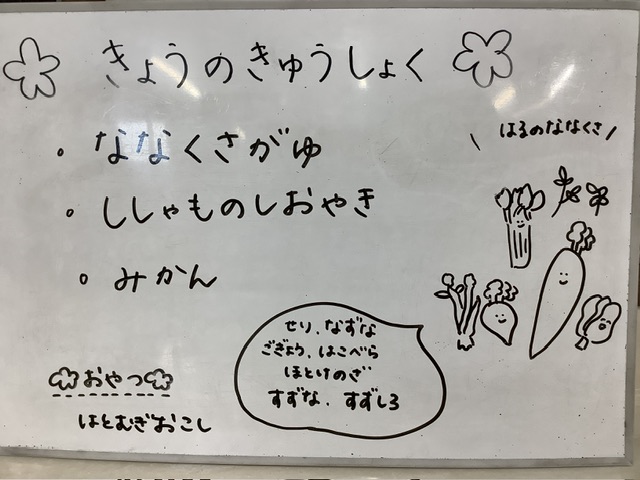 きょうのきゅうしょく
・ななくさがゆ
・ししゃものしおやき
・みかん
\ はるのななくさ /
せり、なずな
ごぎょう、はこべら
ほとけのざ
すずな、すずしろ
おやつ
はとむぎおこし